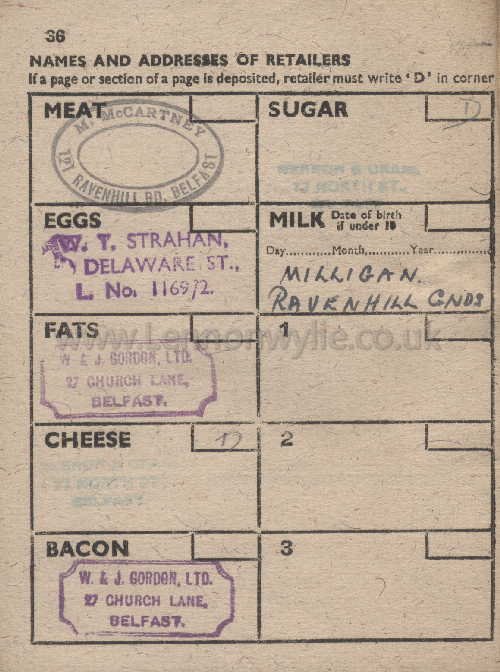 36
NAMES AND ADDRESSES OF RETAILERS
If a page or section of a page is deposited, retailer must write 'D' in corner
MEAT
M. McCARTNEY
121 RAVENHILL RD, BELFAST
SUGAR
D
77 NORTH ST.,
EGGS
W. T. STRAHAN,
DELAWARE ST.,
L. No. 1169/2.
MILK Date of birth
if under 18
Day............Month............Year............
MILLIGAN.
RAVENHILL GNDS
www.Lennonwylie.co.uk
FATS
W & J. GORDON, LTD.
27 CHURCH LANE,
BELFAST.
1
CHEESE
D
77 NORTH ST.,
BELFAST
2
BACON
W. & J. GORDON, LTD.
27 CHURCH LANE,
BELFAST.
3